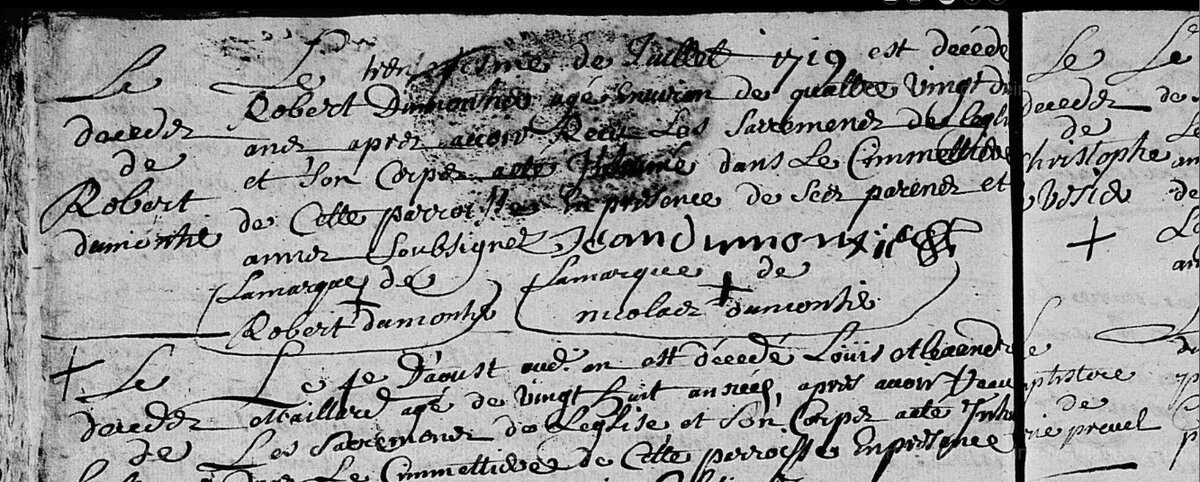 Le
decedz
de
Robert
dumontié
Le trentiesme de Juillet 1719 est décédé
Robert Dumontiée agé Environ de quattre Vingt
anez aprez avoir Receu Les Sacremenz de legli
et Son Corpz a eté Inhumé dans Le Cimmettiere
de Cette parroisse En présence de Sez parenz et
amiez Soubsignez Jean dumontié
La marque de
Robert dumontié
La marque de
nicolaez dumontié
Le
decedz
de
Le 4e D'aoust aud. an est décedé Loüis
Maillard agé de Vingt huit années, aprés avoir
Les Sacremenz de Leglise et Son Corpz a eté Inh
dans Le Cimmettiere de Cette parroisse En présence
Le
decedz
de
christophe
Le
de
prevel